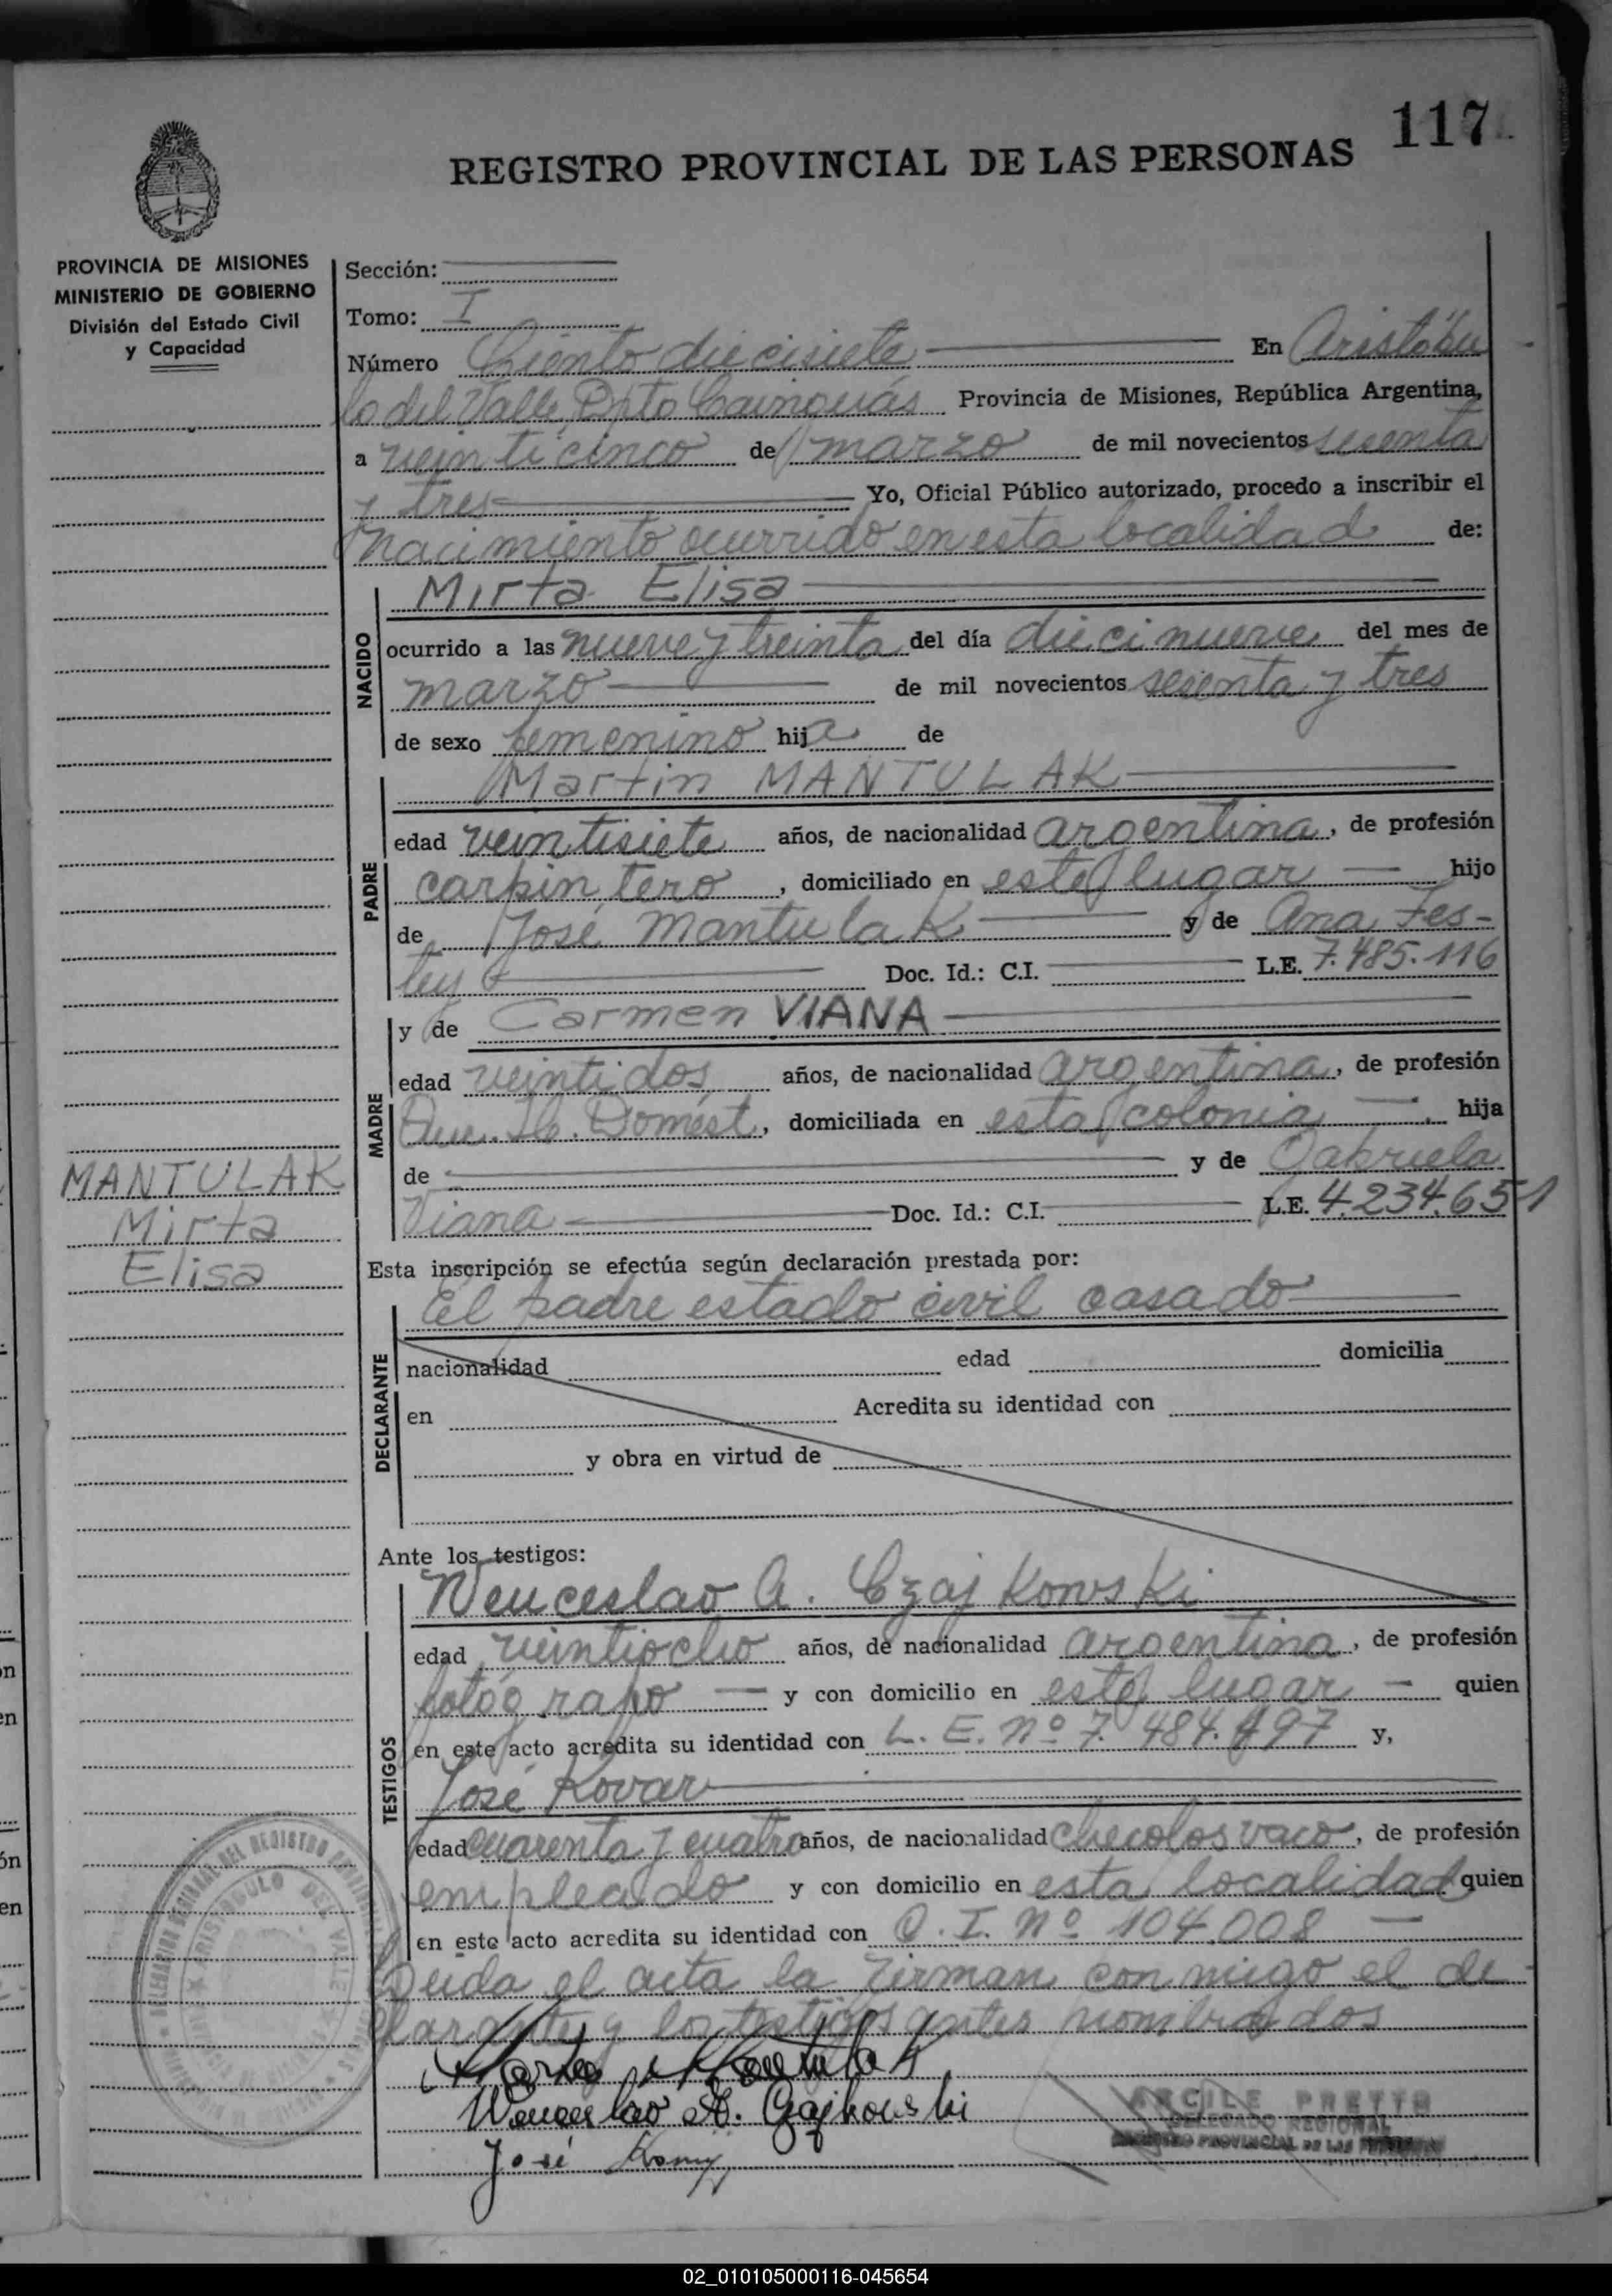 117
REGISTRO PROVINCIAL DE LAS PERSONAS
PROVINCIA DE MISIONES
MINISTERIO DE GOBIERNO
División del Estado Civil
y Capacidad
Sección:
Tomo: I
Número Ciento diecisiete En Aristóbu
lo del Valle, Dpto Cainguás Provincia de Misiones, República Argentina,
a veinticinco de marzo de mil novecientos sesenta
y tres Yo, Oficial Público autorizado, procedo a inscribir el
nacimiento ocurrido en esta localidad de:
NACIDO
Mirta Elisa
ocurrido a las nueve y treinta del día diecinueve del mes de
marzo de mil novecientos sesenta y tres
de sexo femenino hija de
PADRE
Martin MANTULAK
edad veintisiete años, de nacionalidad argentina, de profesión
carpintero, domiciliado en este lugar — hijo
de José Mantulak y de Ana Fes-
ley Doc. Id.: C.I. L.E. 7.485.116
MADRE
y de Carmen VIANA
edad veintidos años, de nacionalidad argentina, de profesión
Domést., domiciliada en esta colonia —. hija
de y de Gabriela
Viana Doc. Id.: C.I. L.E. 4.234.651
MANTULAK
Mirta
Elisa
Esta inscripción se efectúa según declaración prestada por:
DECLARANTE
El padre estado civil casado
nacionalidad edad domicilia
en Acredita su identidad con
y obra en virtud de
Ante los testigos:
TESTIGOS
Wenceslao A. Czajkowski
edad veintiocho años, de nacionalidad argentina, de profesión
fotógrafo — y con domicilio en este lugar — quien
en este acto acredita su identidad con L. E. Nº 7.484.497 y,
José Kovar
edad cuarenta y cuatro años, de nacionalidad checoslovaco, de profesión
empleado y con domicilio en esta localidad quien
en este acto acredita su identidad con C. I. Nº 104.008 —
Leida el acta la firman conmigo el de
clarante y los testigos antes nombrados
Wenceslao A. Czajkowski
José
ARCILE PRETTO
DELEGADO REGIONAL
REGISTRO PROVINCIAL DE LAS PERSONAS
ARISTOBULO DEL VALLE
02_010105000116-045654